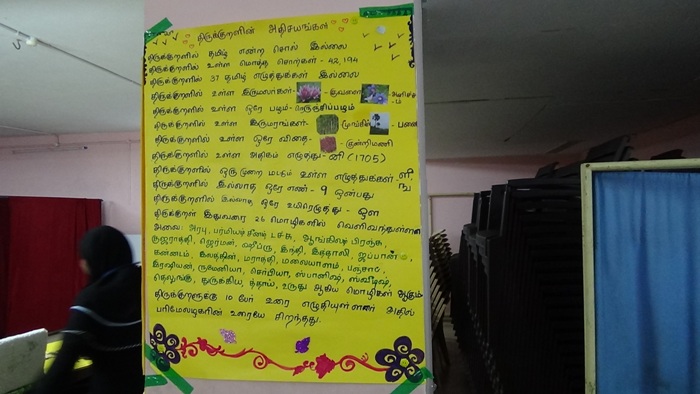 திருக்குறளின் அதிசயங்கள்
திருக்குறளில் தமிழ் என்ற சொல் இல்லை
திருக்குறளில் உள்ள மொத்த சொற்கள் - 42,194
திருக்குறளில் 37 தமிழ் எழுத்துக்கள் இல்லை
திருக்குறளில் உள்ள இருமலர்கள் - - குவளை
திருக்குறளில் உள்ள ஒரே பழம் - நெருஞ்சிப்பழம்
திருக்குறளில் உள்ள இருமரங்கள் - மூங்கில் - பனை
திருக்குறளில் உள்ள ஒரே விதை - - குன்றிமணி
திருக்குறளில் உள்ள அதிகம் எழுத்து - னி (1705)
திருக்குறளில் ஒருமுறை மட்டும் உள்ள எழுத்துக்கள் - ளீ ங
திருக்குறளில் இல்லாத ஒரே எண் - 9 ஒன்பது
திருக்குறளில் இல்லாத ஒரே உயிரெழுத்து - ஒள
திருக்குறள் இதுவரை 26 மொழிகளில் வெளிவந்துள்ளன
அவை: அரபு, பர்மியஷ் சீனஷ் டச்சு, ஆங்கிலஷ் பிரஞ்சு,
குஜராத்தி, ஜெர்மன், ஹீப்ரு, இந்தி, இத்தாலி, ஜப்பான்
கன்னடம், இலத்தின், மராத்தி, மலையாளம், பஞ்சாப்,
இரஷியன், ருமேனியா, செர்பியா, ஸ்பானிஷ், ஸ்வீடிஷ்,
தெலுங்கு, துருக்கிய, உருது ஆகிய மொழிகள் ஆகும்
திருக்குறளுக்கு 10 பேர் உரை எழுதியுள்ளனர் அதில்
பரிமேலழகரின் உரையே சிறந்தது.